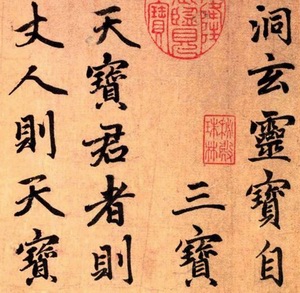 洞玄靈寶自
三寶
天寶君者則
丈人則天寶